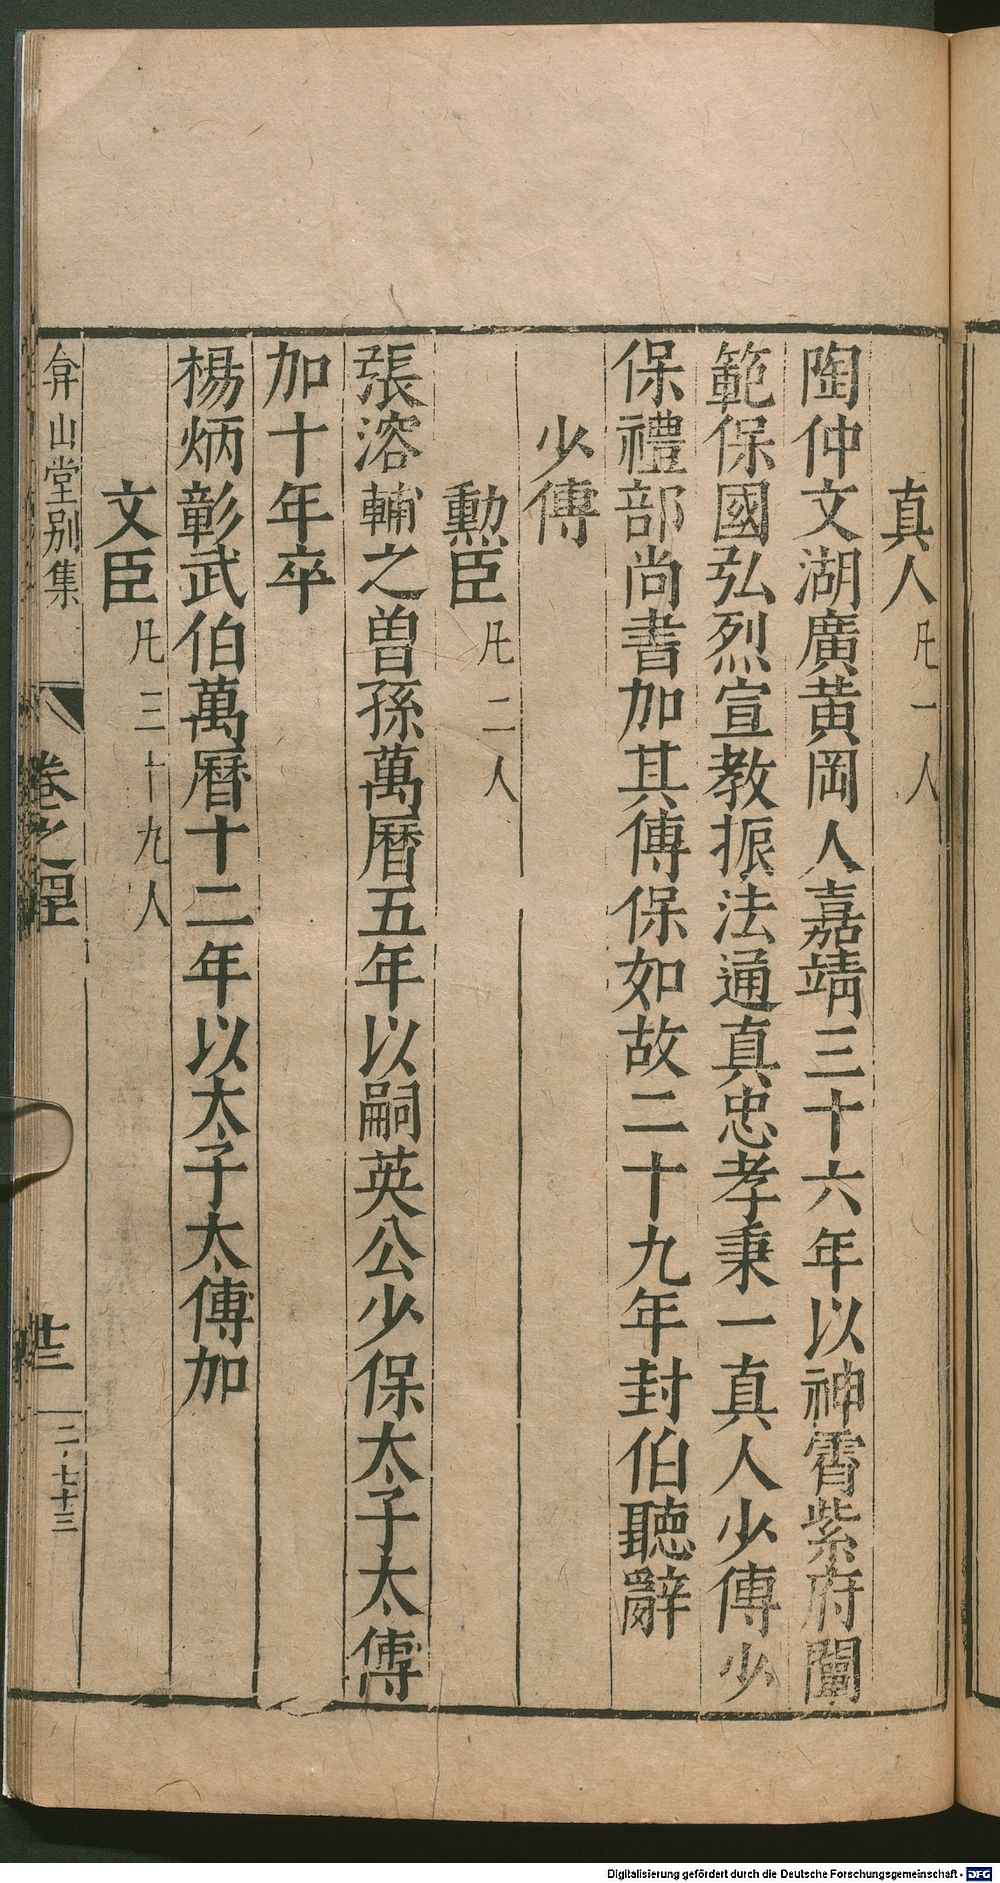 真人凡一人
陶仲文湖廣黄岡人嘉靖三十六年以神霄紫府闡
範保國弘烈宣教振法通真忠孝秉一真人少傅少
保禮部尚書加其傅保如故二十九年封伯聽辭
少傅
勲臣凡二人
張溶輔之曽孫萬曆五年以嗣英公少保太子太傅
加十年卒
楊炳彰武伯萬曆十二年以太子太傅加
文臣凡三十九人
弇山堂别集
卷之
廿三
二·七十三
Digitalisierung gefördert durch die Deutsche Forschungsgemeinschaft - DFG